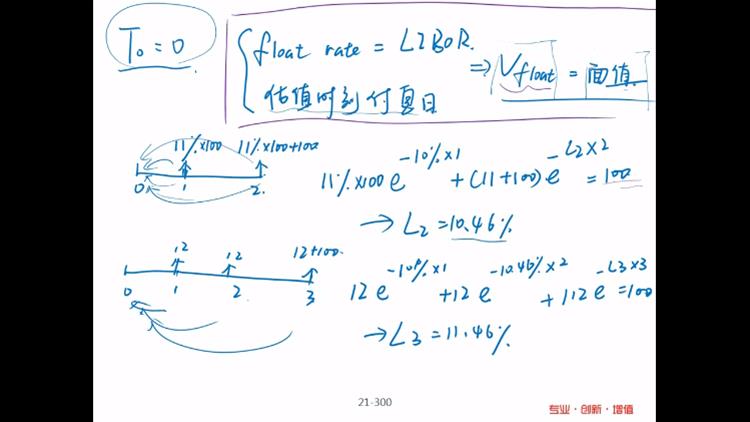 T₀ = 0
float rate = LIBOR.
估值时刻付息日
⇒ V float = 面值
11%×100 11%×100+100
0 1 2.
11%×100 e^{-10%×1} + (11+100) e^{-L2×2} = 100
→ L₂ = 10.46%
12 12 12+100.
0 1 2 3
12 e^{-10%×1} + 12 e^{-10.46%×2} + 112 e^{-L3×3} = 100
→ L₃ = 11.46%
21-300
专业·创新·增值